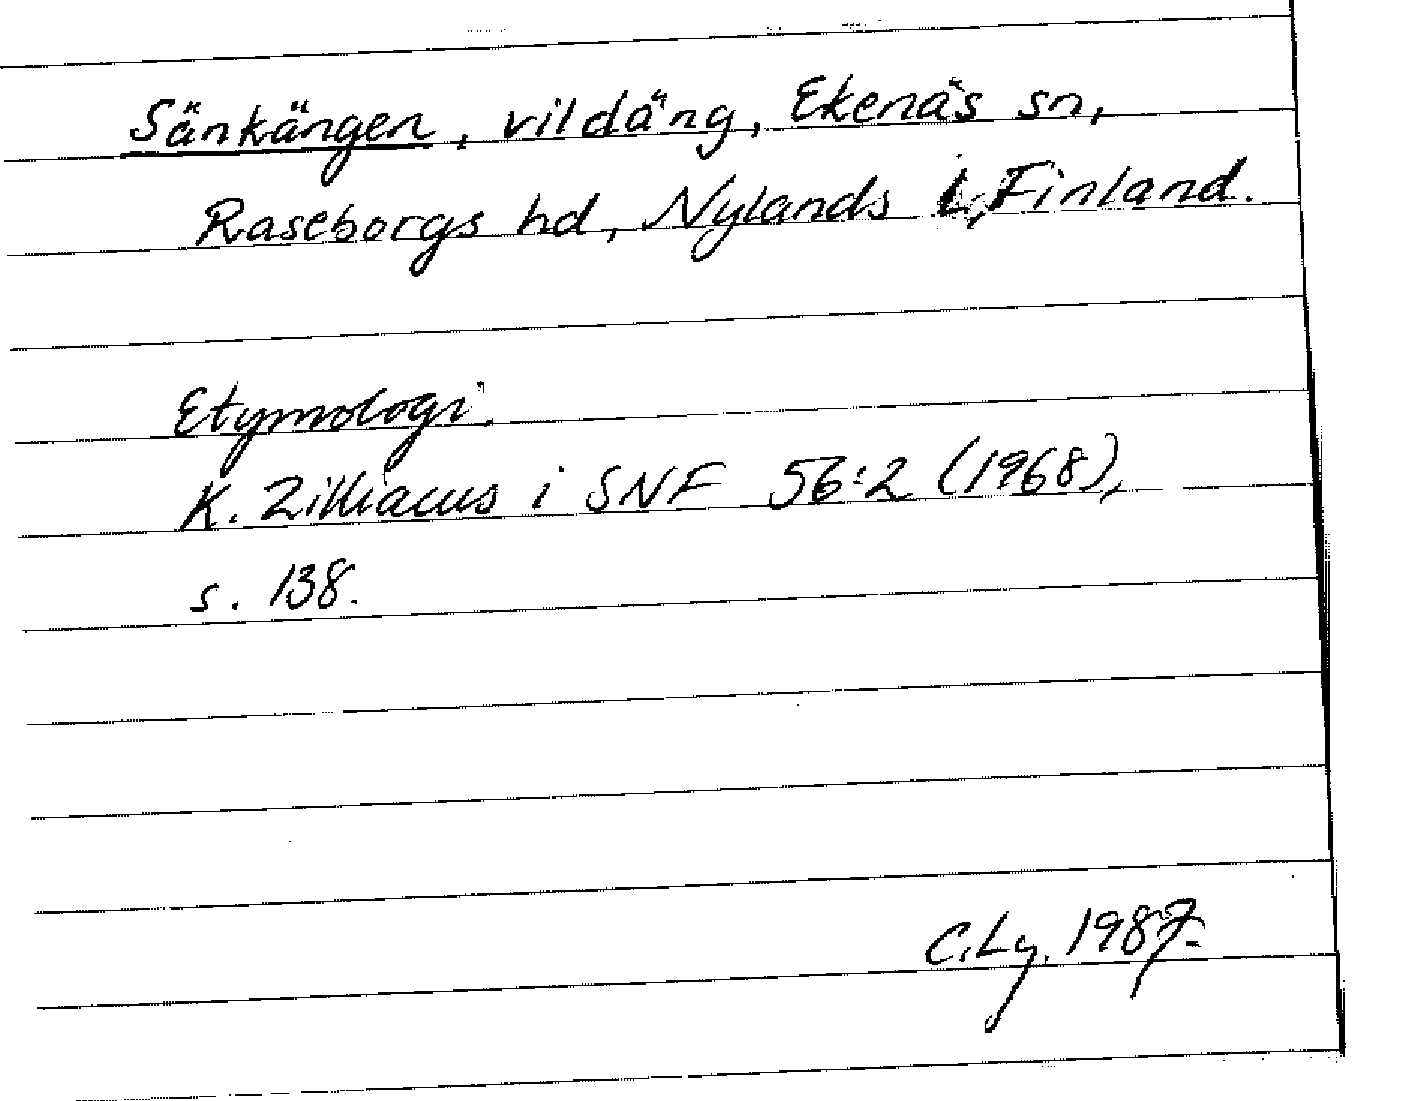 Sänkängen, vildäng, Ekenäs sn,
Raseborgs hd, Nylands L, Finland.
Etymologi.
K. Zilliacus i SNF 56:2 (1968),
s. 138.
C. Ly. 1987.